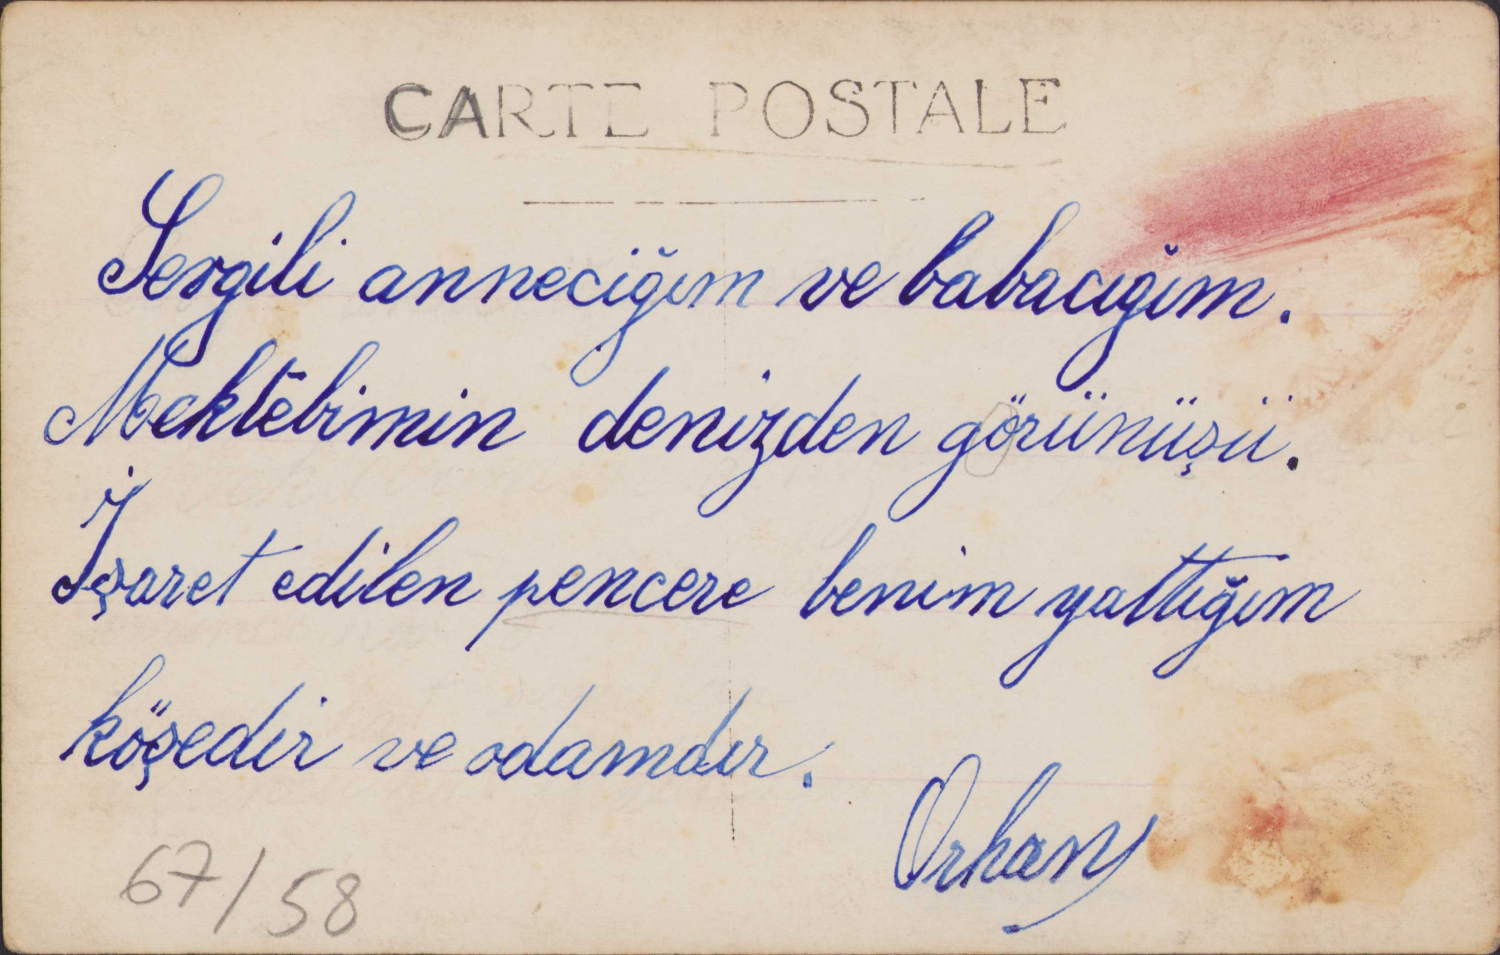 CARTE POSTALE
Sevgili anneciğım ve babacığım.
Mektebimin denizden görünüşü.
İşaret edilen pencere benim yattığım
köşedir ve odamdır.
Orhan
67/58